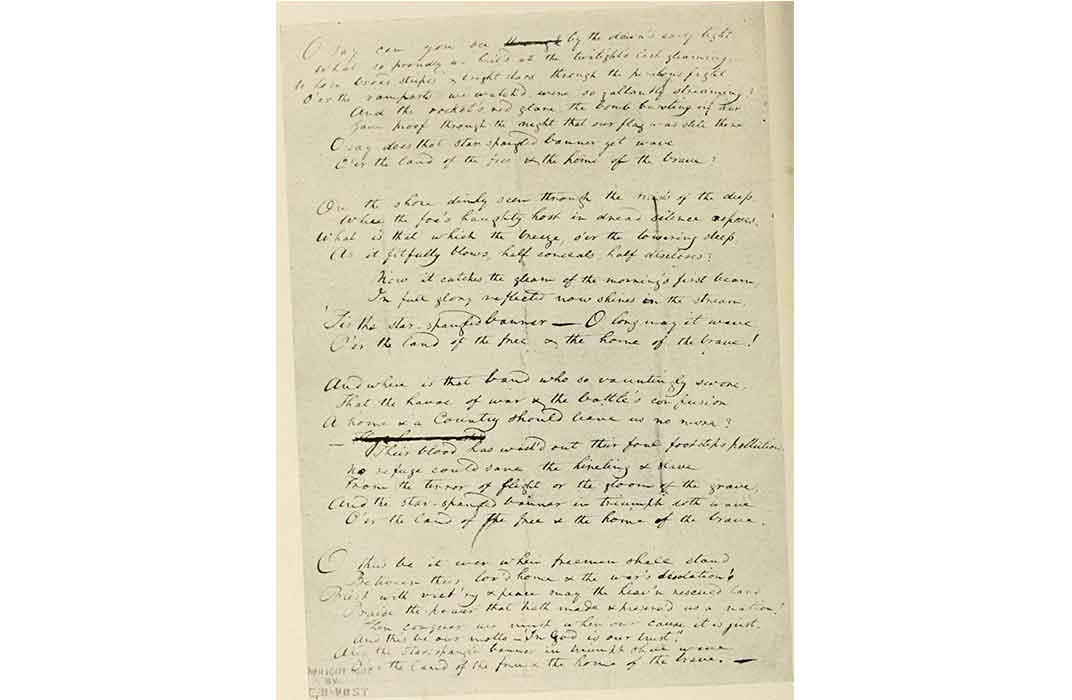 O say can you see by the dawn's early light
What so proudly we hail'd at the twilight's last gleaming,
Whose broad stripes & bright stars through the perilous fight
O'er the ramparts we watch'd, were so gallantly streaming?
And the rocket's red glare, the bomb bursting in air,
Gave proof through the night that our flag was still there
O say does that star-spangled banner yet wave
O'er the land of the free & the home of the brave?
On the shore dimly seen through the mists of the deep,
Where the foe's haughty host in dread silence reposes,
What is that which the breeze, o'er the towering steep,
As it fitfully blows, half conceals, half discloses?
Now it catches the gleam of the morning's first beam,
In full glory reflected now shines in the stream,
'Tis the star-spangled banner — O long may it wave
O'er the land of the free & the home of the brave!
And where is that band who so vauntingly swore,
That the havoc of war & the battle's confusion
A home & a Country should leave us no more?
—
Their blood has wash'd out their foul footsteps pollution
No refuge could save the hireling & slave
From the terror of flight or the gloom of the grave,
And the star-spangled banner in triumph doth wave
O'er the land of the free & the home of the brave.
O thus be it ever when freemen shall stand
Between their lov'd home & the war's desolation!
Blest with vict'ry & peace may the heav'n rescued land
Praise the power that hath made & preserv'd us a nation!
Then conquer we must, when our cause it is just,
And this be our motto — "In God is our trust,"
And the star-spangled banner in triumph shall wave
O'er the land of the free & the home of the brave. —
BY